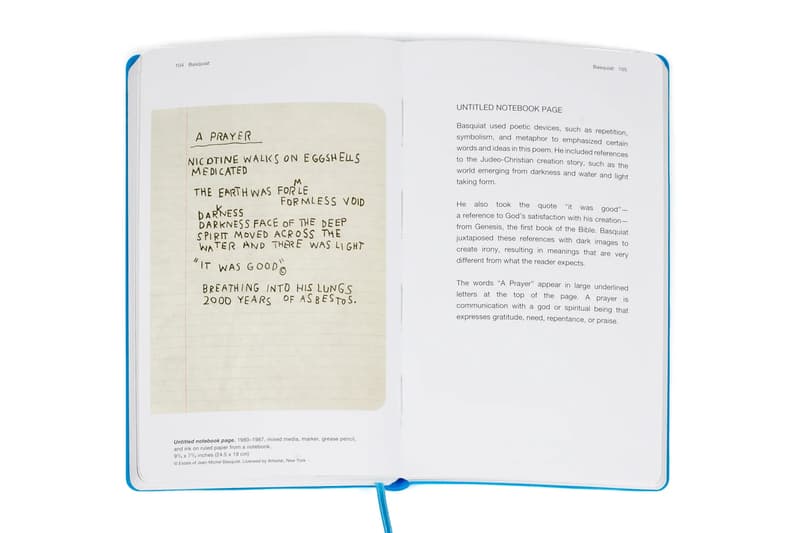 104 Basquiat
A PRAYER
NICOTINE WALKS ON EGGSHELLS
MEDICATED
THE EARTH WAS FORMLE
FORMLESS VOID
DARKNESS
DARKNESS FACE OF THE DEEP
SPIRIT MOVED ACROSS THE
WATER AND THERE WAS LIGHT
"IT WAS GOOD"©
BREATHING INTO HIS LUNGS
2000 YEARS OF ASBESTOS.
Untitled notebook page, 1980–1987, mixed media, marker, grease pencil,
and ink on ruled paper from a notebook.
9⅝ x 7⅝ inches (24.5 x 19 cm)
© Estate of Jean-Michel Basquiat. Licensed by Artestar, New York
Basquiat 105
UNTITLED NOTEBOOK PAGE
Basquiat used poetic devices, such as repetition,
symbolism, and metaphor to emphasized certain
words and ideas in this poem. He included references
to the Judeo-Christian creation story, such as the
world emerging from darkness and water and light
taking form.
He also took the quote "it was good"—
a reference to God's satisfaction with his creation—
from Genesis, the first book of the Bible. Basquiat
juxtaposed these references with dark images to
create irony, resulting in meanings that are very
different from what the reader expects.
The words "A Prayer" appear in large underlined
letters at the top of the page. A prayer is
communication with a god or spiritual being that
expresses gratitude, need, repentance, or praise.